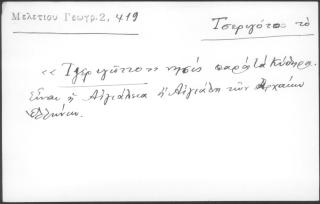 Μελετίου Γεωγρ. 2, 419
Τσεριγότο τὸ
«Τζεριγῶττο» νησὶς παρὰ τὰ Κύθηρα.
Εἶναι ἡ Αἰγιάλεια ἢ Αἰγιάδη τῶν Ἀρχαίων
Ἑλλήνων.